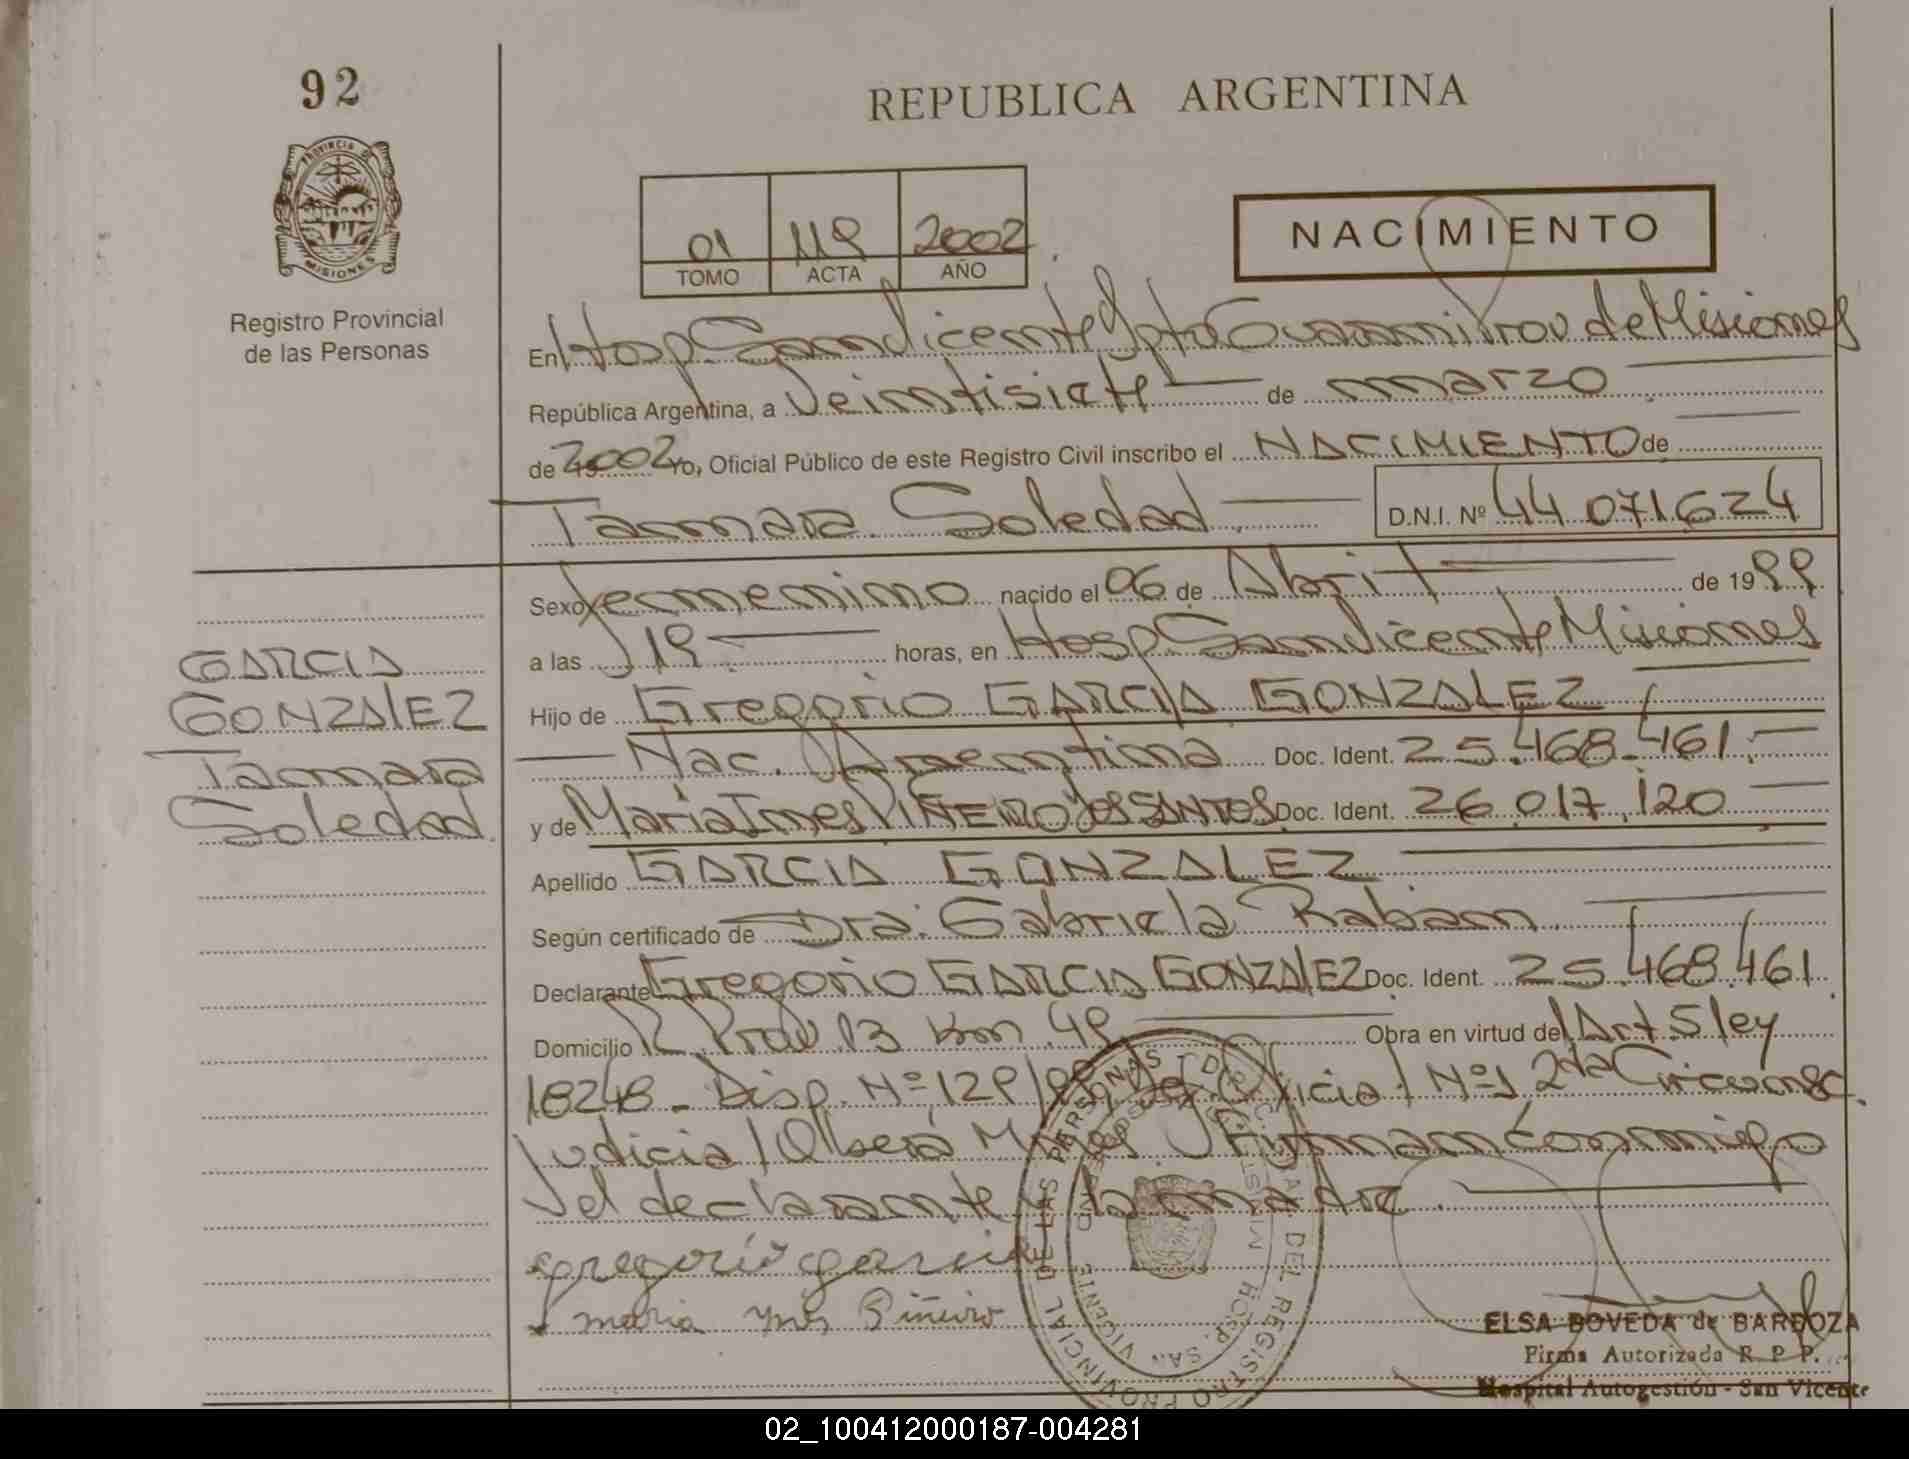 92
REPUBLICA ARGENTINA
PROVINCIA DE MISIONES
Registro Provincial
de las Personas
01 119 2002
TOMO ACTA AÑO
NACIMIENTO
En Hosp. San Vicente Dpto Guarani Prov. de Misiones
República Argentina, a Veintisiete de marzo
de 2002 Yo, Oficial Público de este Registro Civil inscribo el NACIMIENTO de
Tamara Soledad D.N.I. Nº 44.071.624
Sexo femenino nacido el 06 de Abril de 1999
a las 19 horas, en Hosp San Vicente Misiones
Hijo de Gregorio GARCIA GONZALEZ
Nac. Argentina Doc. Ident. 25.468.461
y de Maria Ines PIÑEIRO DOS SANTOS Doc. Ident. 26.017.120
Apellido GARCIA GONZALEZ
Según certificado de Dra. Gabriela Raban
Declarante Gregorio GARCIA GONZALEZ Doc. Ident. 25.468.461
Domicilio R. Prov 13 Km 49 Obra en virtud del Art 5 ley
18248 - Disp. Nº 129/99 Oficial Nº 1 2da Circunsc.
Judicial Obera Mnes. Firman conmigo
el declarante y la madre.
gregorio garcia
maria ynes Piñeiro
GARCIA
GONZALEZ
Tamara
Soledad
DIRECC. GRAL. DEL REGISTRO PROVINCIAL DE LAS PERSONAS
HOSP. SAN VICENTE
ELSA BOVEDA de BARBOZA
Firma Autorizada R. P. P.
Hospital Autogestión - San Vicente
02_100412000187-004281